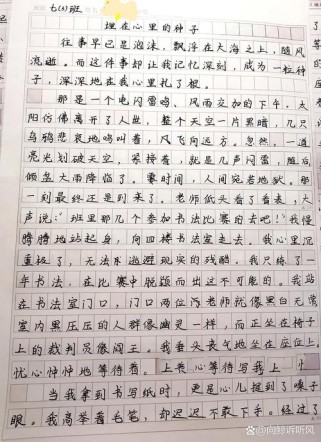 七(3)班
埋在心里的种子
往事早已是泡沫，飘浮在大海之上，随风
流逝。而这件事却让我记忆深刻，成为一粒种
子，深深地在我心里扎了根。
那是一个电闪雷鸣、风雨交加的下午。太
阳仿佛离开了人世，整个天空一片黑暗，几只
乌鸦悲哀地鸣叫着，风飞向远方。忽然，一道
亮光划破天空，紧接着，就是几声闪雷，随后
倾盆大雨降临了。霎时间，人间宛若地狱。那
一刻最终还是到来了。老师低头看了看表，大
声说："班里那几个参加书法比赛的去吧！"我慢
腾腾地站起身，向四楼书法室走去。我心里沉
重极了，无法逃避现实的残酷，我只练了一
年书法，在比赛中脱颖而出这不可能的。我站
在书法室门口，门口两位老师就像黑白无常
室内黑压压的人群像幽灵一样，而正坐在椅子
上的裁判员像阎王。我垂头丧气地坐在座位上，
忧心忡忡地等待着。
当我拿到书写纸时，更是心儿提到了嗓子
眼。我高举着毛笔，却迟迟不敢下手。经过了
@向卿诉听风